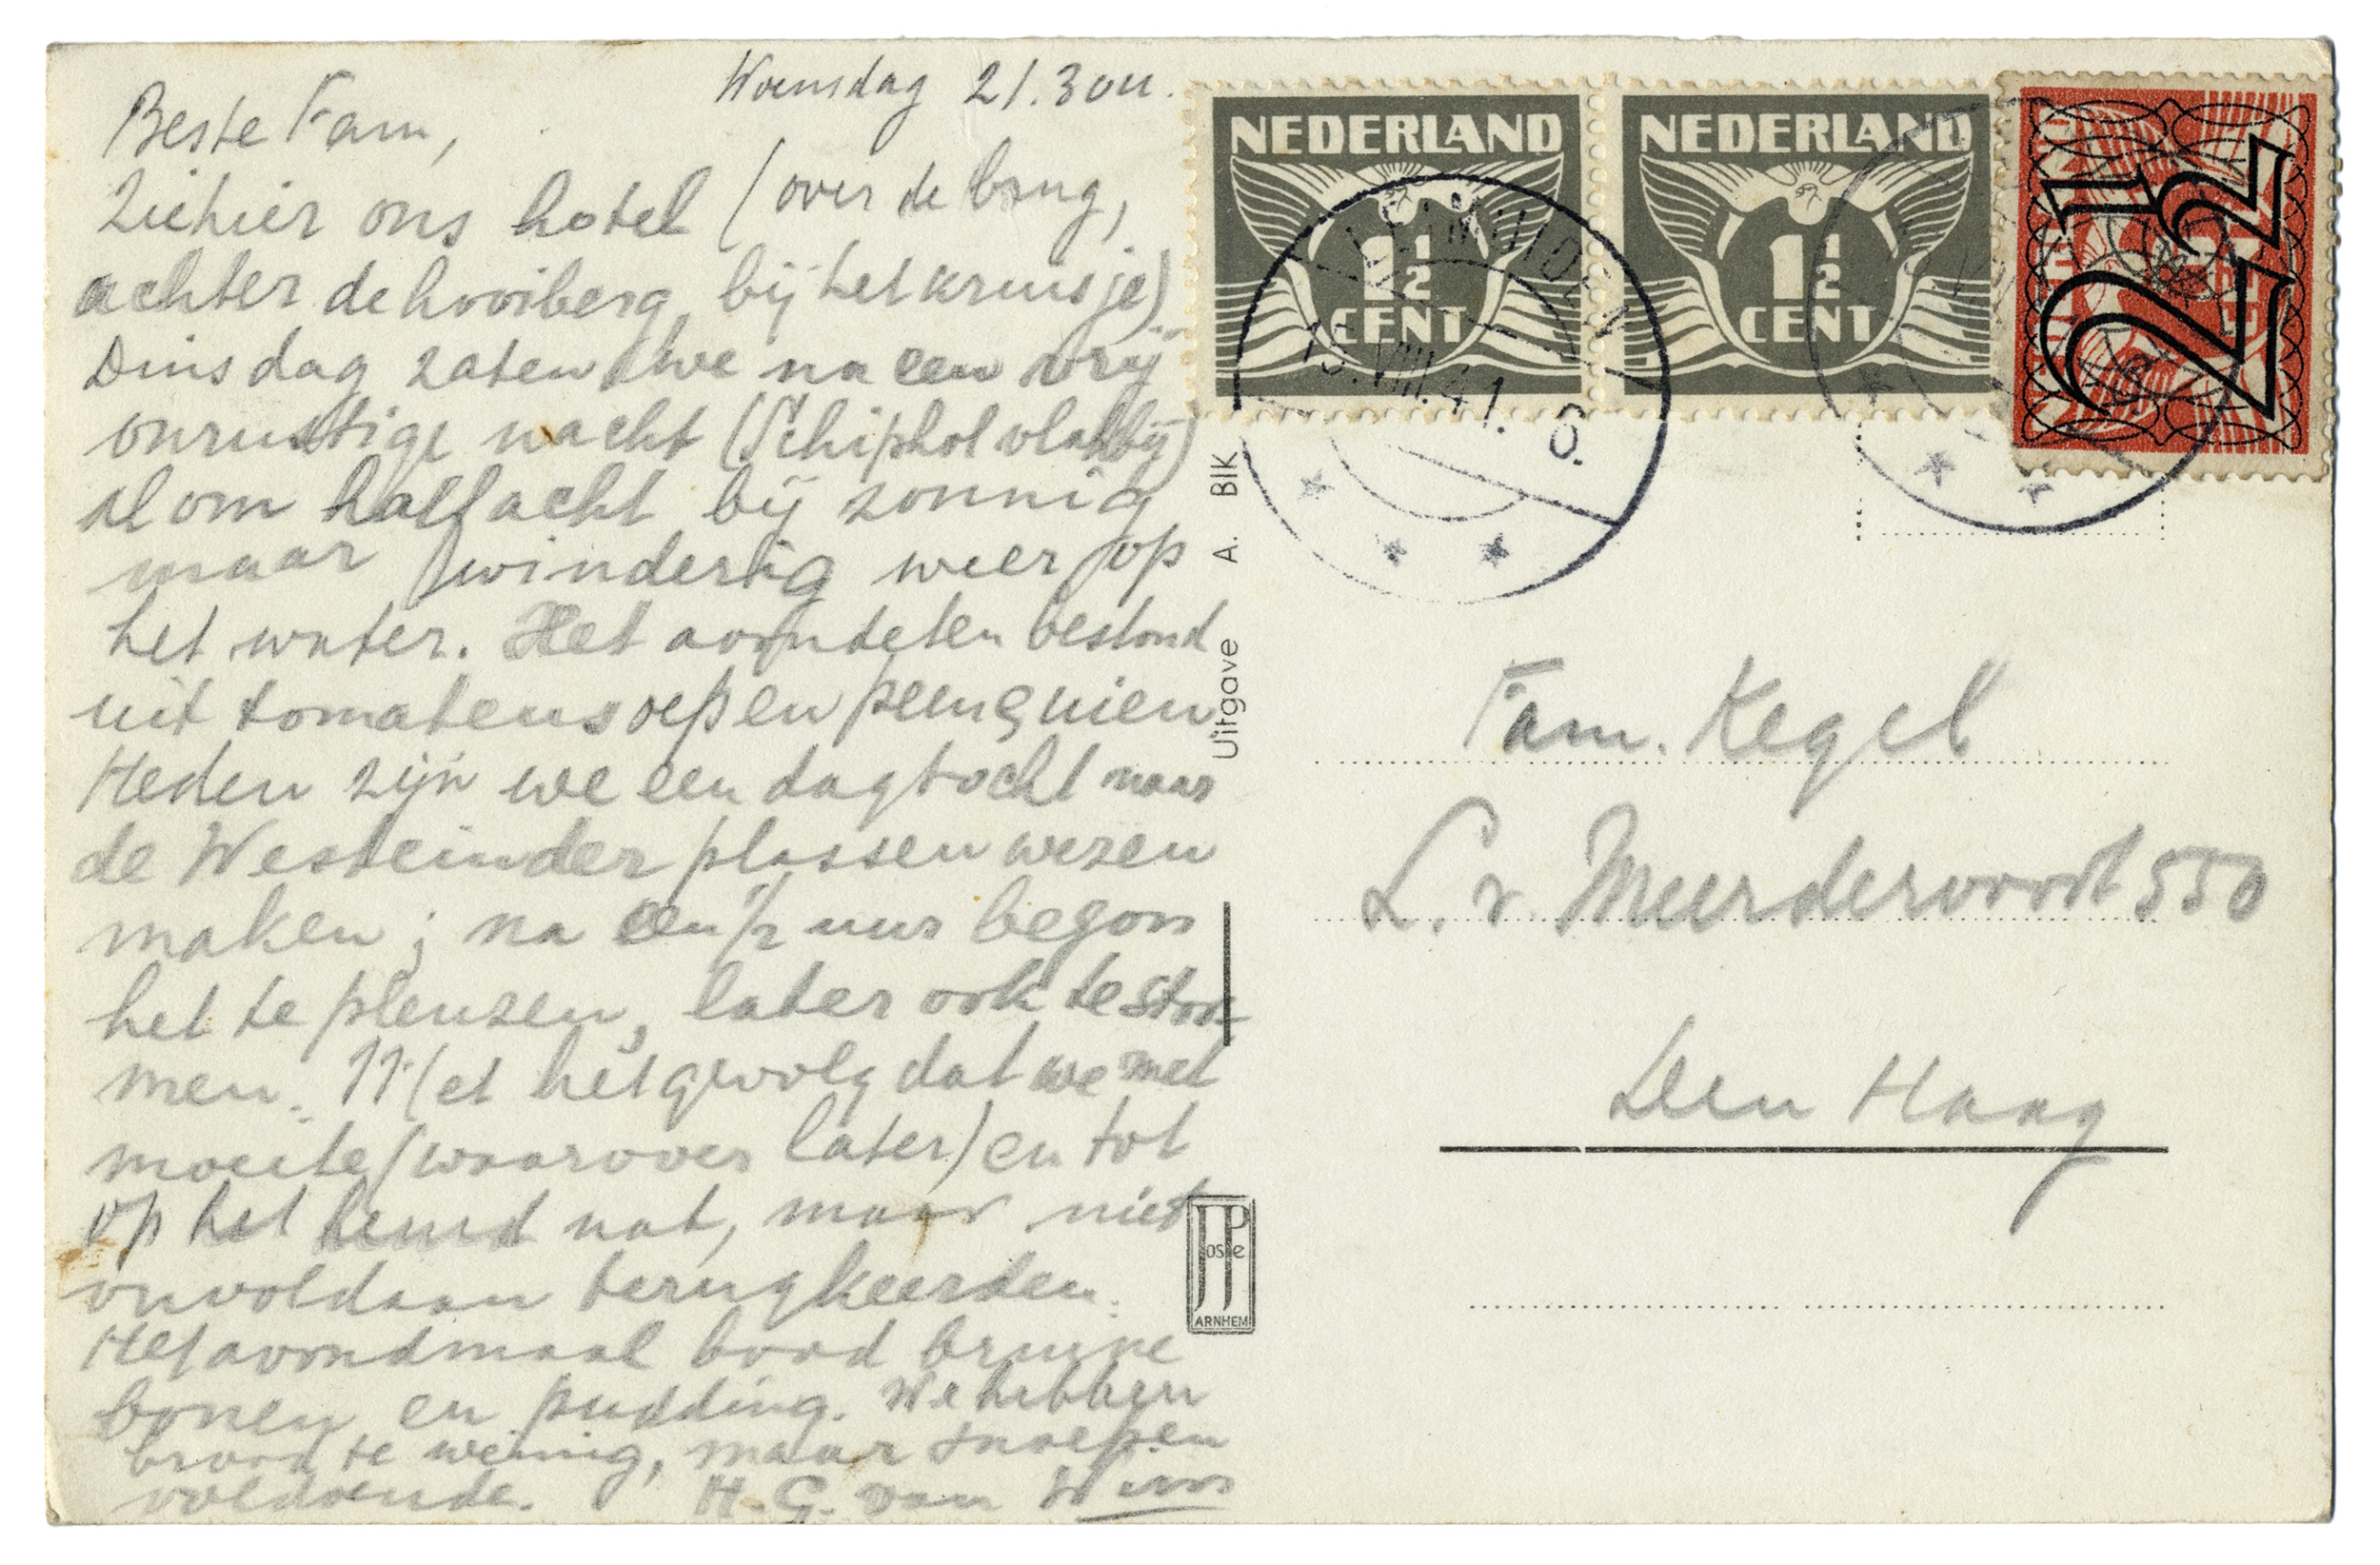 Woensdag 21.30 u.
Beste Fam,
Ziehier ons hotel (over de brug,
achter de hooiberg, bij het kruisje)
Dinsdag zaten we na een vrij
onrustige nacht (Schiphol vlakbij)
al om half acht bij zonnig
maar winderig weer op
het water. Het avondeten bestond
uit tomatensoep en
Heden zijn we een dagtocht naar
de Westeinderplassen wezen
maken; na een ½ uur begon
het te plenzen, later ook te stor-
men. Met het gevolg dat we met
moeite (waarover later) en tot
op het hemd nat, maar niet
onvoldaan terugkeerden.
Het avondmaal bood bruine
bonen en pudding. We hebben
brood te weinig, maar snoepen
voldoende. H. G. van Wim
NEDERLAND
1½
CENT
NEDERLAND
1½
CENT
2½
15.VIII.41. 8.
Uitgave A. Blk
Fam. Kegel
L. v. Meerdervoort 550
Den Haag
JosPe
ARNHEM